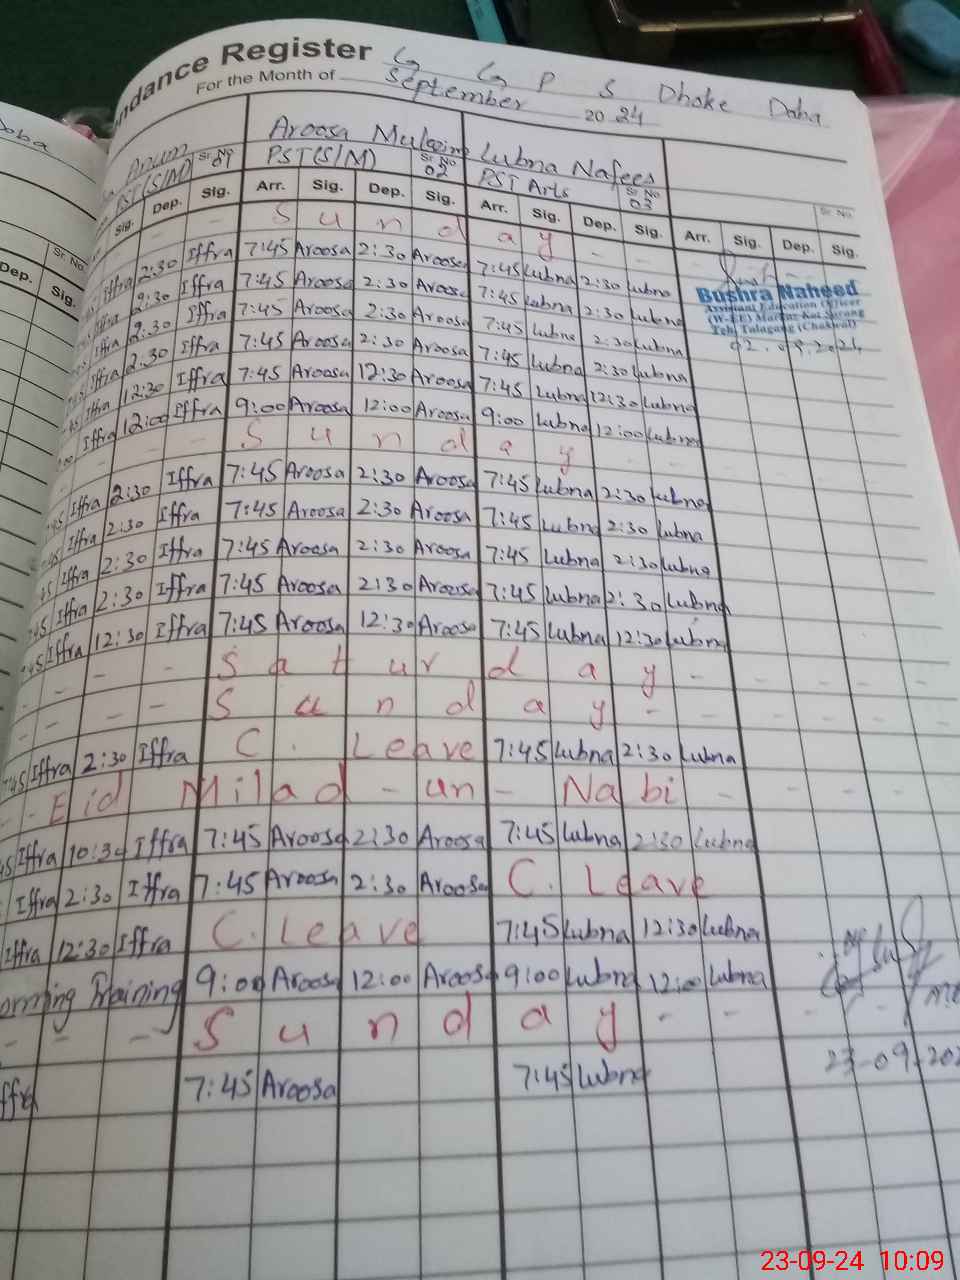 Attendance Register G G P S Dhoke Daba
For the Month of September 2024
Anum Sr. No 01 Aroosa Mulazim Sr. No 02 Lubna Nafees Sr. No 03 Sr. No.
PST(S/M) PST(S/M) PST Arts
Sig. Dep. Sig. Arr. Sig. Dep. Sig. Arr. Sig. Dep. Sig. Arr. Sig. Dep. Sig.
- - S u n d a y - -
Iffra 2:30 Iffra 7:45 Aroosa 2:30 Aroosa 7:45 Lubna 2:30 Lubna
Iffra 2:30 Iffra 7:45 Aroosa 2:30 Aroosa 7:45 Lubna 2:30 Lubna
Iffra 2:30 Iffra 7:45 Aroosa 2:30 Aroosa 7:45 Lubna 2:30 Lubna
Iffra 2:30 Iffra 7:45 Aroosa 2:30 Aroosa 7:45 Lubna 2:30 Lubna
Iffra 12:30 Iffra 7:45 Aroosa 12:30 Aroosa 7:45 Lubna 12:30 Lubna
Iffra 12:00 Iffra 9:00 Aroosa 12:00 Aroosa 9:00 Lubna 12:00 Lubna
- - S u n d a y - -
Iffra 2:30 Iffra 7:45 Aroosa 2:30 Aroosa 7:45 Lubna 2:30 Lubna
Iffra 2:30 Iffra 7:45 Aroosa 2:30 Aroosa 7:45 Lubna 2:30 Lubna
Iffra 2:30 Iffra 7:45 Aroosa 2:30 Aroosa 7:45 Lubna 2:30 Lubna
Iffra 2:30 Iffra 7:45 Aroosa 2:30 Aroosa 7:45 Lubna 2:30 Lubna
Iffra 12:30 Iffra 7:45 Aroosa 12:30 Aroosa 7:45 Lubna 12:30 Lubna
- - - S a t u r d a y - - -
- - - S u n d a y - - -
7:45 Iffra 2:30 Iffra C. Leave 7:45 Lubna 2:30 Lubna
- - Eid Milad - un - Nabi - - - -
Iffra 10:30 Iffra 7:45 Aroosa 2:30 Aroosa 7:45 Lubna 2:30 Lubna
Iffra 2:30 Iffra 7:45 Aroosa 2:30 Aroosa C. Leave
Iffra 12:30 Iffra C. Leave 7:45 Lubna 12:30 Lubna
Training 9:00 Aroosa 12:00 Aroosa 9:00 Lubna 12:00 Lubna
- - - S u n d a y - - - -
7:45 Aroosa 7:45 Lubna
Bushra Naheed
Assistant Education Officer
(W-EE) Markaz Kot Sarang
Teh. Talagang (Chakwal)
02.09.2024
23-09-202
Sr. No.
Dep. Sig.
23-09-24 10:09